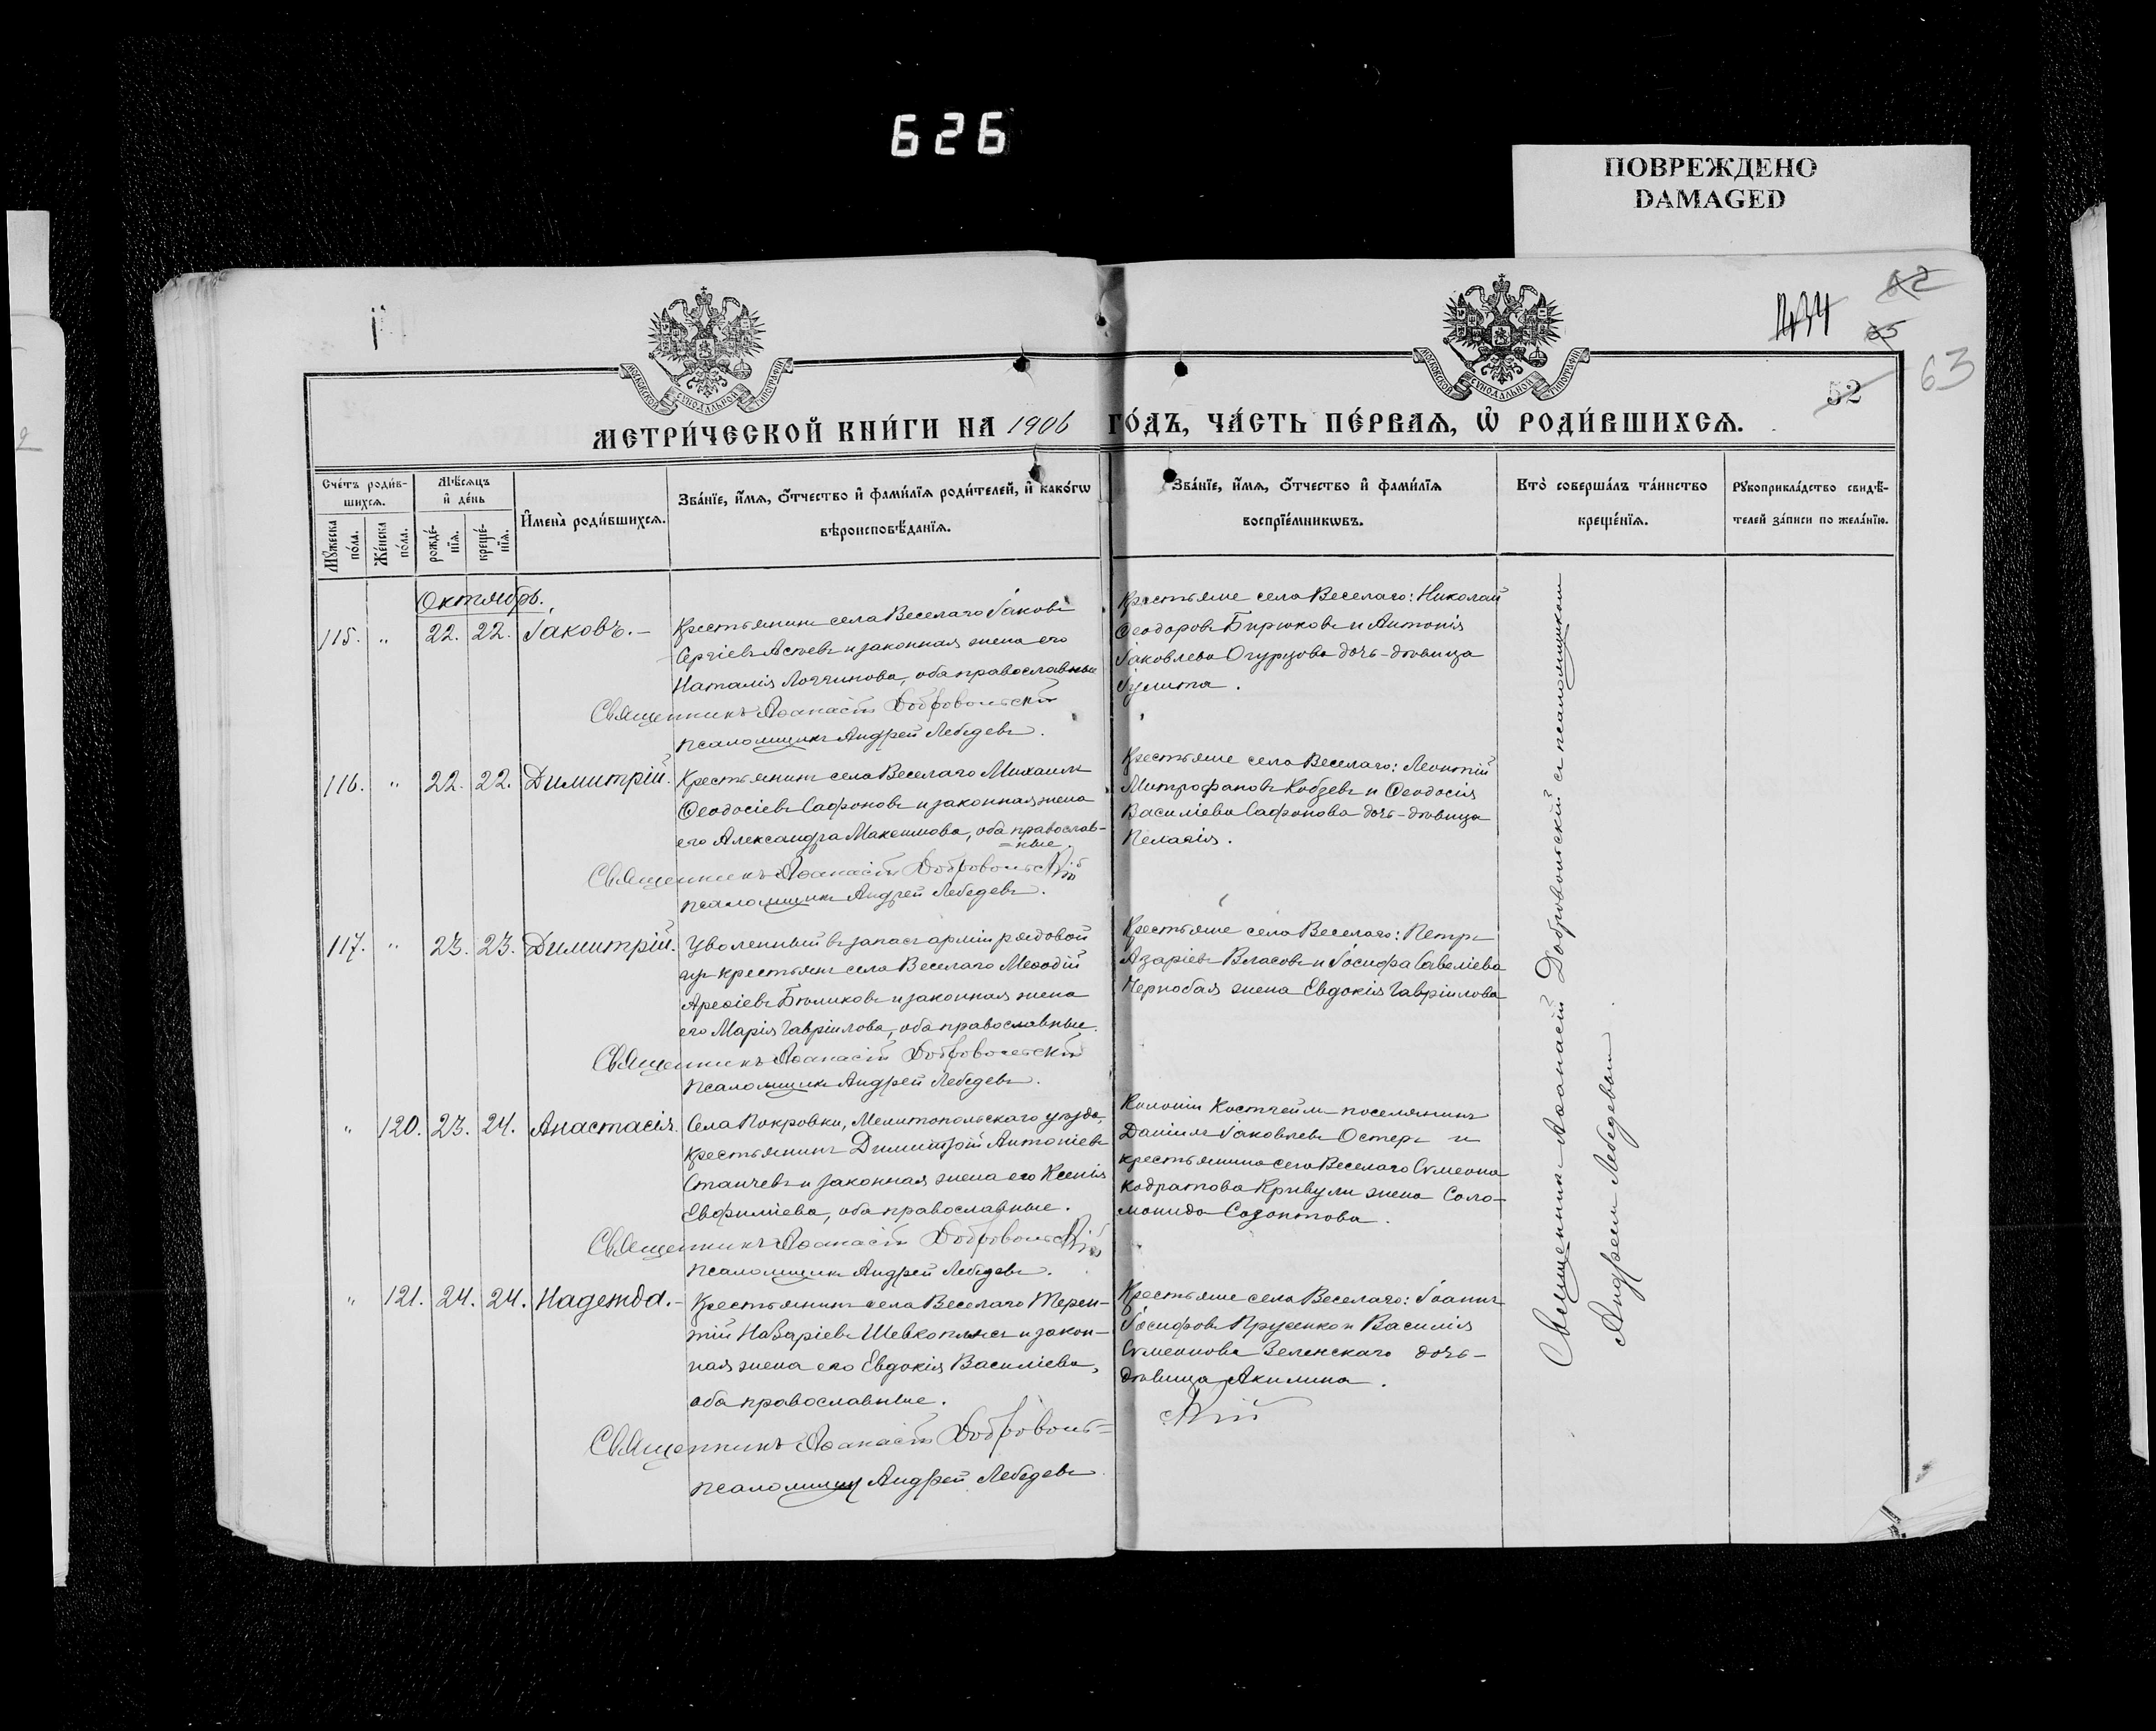 626
ПОВРЕЖДЕНО
DAMAGED
62
65
52
63
МОСКОВСКОЙ СѴНОДАЛЬНОЙ ТИПОГРАФІИ
МОСКОВСКОЙ СѴНОДАЛЬНОЙ ТИПОГРАФІИ
МЕТРИ́ЧЕСКОЙ КНИ́ГИ НА 1906 ГО́ДЪ, ЧА́СТЬ ПЕ́РВАѦ, Ѡ҆ РОДИ́ВШИХСѦ.
Сче́тъ роди́в-
шихсѧ.
Мꙋ́жеска по́ла.
Же́нска по́ла.
Мѣ́сѧцъ
и҆ де́нь
рожде́-
нїѧ.
креще́-
нїѧ.
И҆мена̀ роди́вшихсѧ.
Зва́нїе, и҆́мѧ, ѻ҆́тчество и҆ фами́лїѧ роди́телей, и҆ како́гѡ
вѣроисповѣ́данїѧ.
Зва́нїе, и҆́мѧ, ѻ҆́тчество и҆ фами́лїѧ
воспрїе́мникѡвъ.
Кто̀ соверша́лъ та́инство
креще́нїѧ.
Рꙋкоприкла́дство свидѣ́-
телей за́писи по жела́нїю.
Октябрь.
115. " 22. 22. Іаковъ.–
Крестьянинъ села Веселаго Іаковъ
Сергіевъ и законная жена его
Наталія Логгинова, оба православные
Священникъ Аѳанасій Добровольскій
псаломщикъ Андрей Лебедевъ.
Крестьяне села Веселаго: Николай
Ѳеодоровъ Бирюковъ и Антонія
Іаковлева Огурцова дочь-дѣвица
Іулита.
116. " 22. 22. Димитрій.
Крестьянинъ села Веселаго Михаилъ
Ѳеодосіевъ Сафоновъ и законная жена
его Александра Максимова, оба православ-
=ные.
Священникъ Аѳанасій Добровольскій
псаломщикъ Андрей Лебедевъ.
Крестьяне села Веселаго: Леонтій
Митрофановъ Кобзевъ и Ѳеодосія
Василіева Сафонова дочь-дѣвица
Пелагія.
117. " 23. 23. Димитрій.
Уволенный въ запасъ арміи рядовой
изъ крестьянъ села Веселаго Меѳодій
Ареѳіевъ Бѣликовъ и законная жена
его Марія Гавріилова, оба православные.
Священникъ Аѳанасій Добровольскій
псаломщикъ Андрей Лебедевъ.
Крестьяне села Веселаго: Петръ
Азаріевъ Власовъ и Іосифа Савеліева
Чернобая жена Евдокія Гавріилова
" 120. 23. 24. Анастасія.
Села Покровки, Мелитопольскаго уѣзда,
крестьянинъ Димитрій Антоніевъ
Станчевъ и законная жена его Ксенія
Евфиміева, оба православные.
Священникъ Аѳанасій Добровольскій
псаломщикъ Андрей Лебедевъ.
Колоніи Костгеймъ поселянинъ
Даніилъ Іаковлевъ Остеръ и
крестьянина села Веселаго Сѵмеона
Кодратова Кривули жена Соло-
монида Созонтова.
" 121. 24. 24. Надежда.–
Крестьянинъ села Веселаго Терен-
тій Назаріевъ Шевкоплясъ и закон-
ная жена его Евдокія Василіева,
оба православные.
Священникъ Аѳанасій Доброволь=
скій
псаломщикъ Андрей Лебедевъ
Крестьяне села Веселаго: Іоаннъ
Іосифовъ Прусенко и Василія
Сѵмеонова Зеленскаго дочь-
дѣвица Акилина.
Священникъ Аѳанасій Добровольскій съ псаломщикомъ
Андреем Лебедевым.